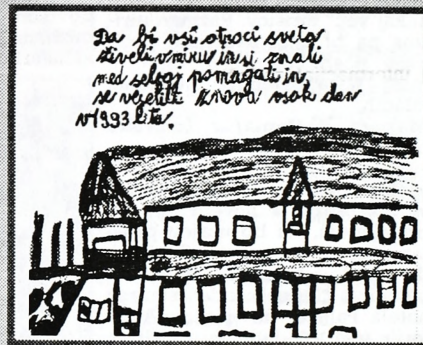 Da bi vsi otroci sveta
živeli v miru in si znali
med seboj pomagati in
se veselili znova vsak dan
v 1993 leta.